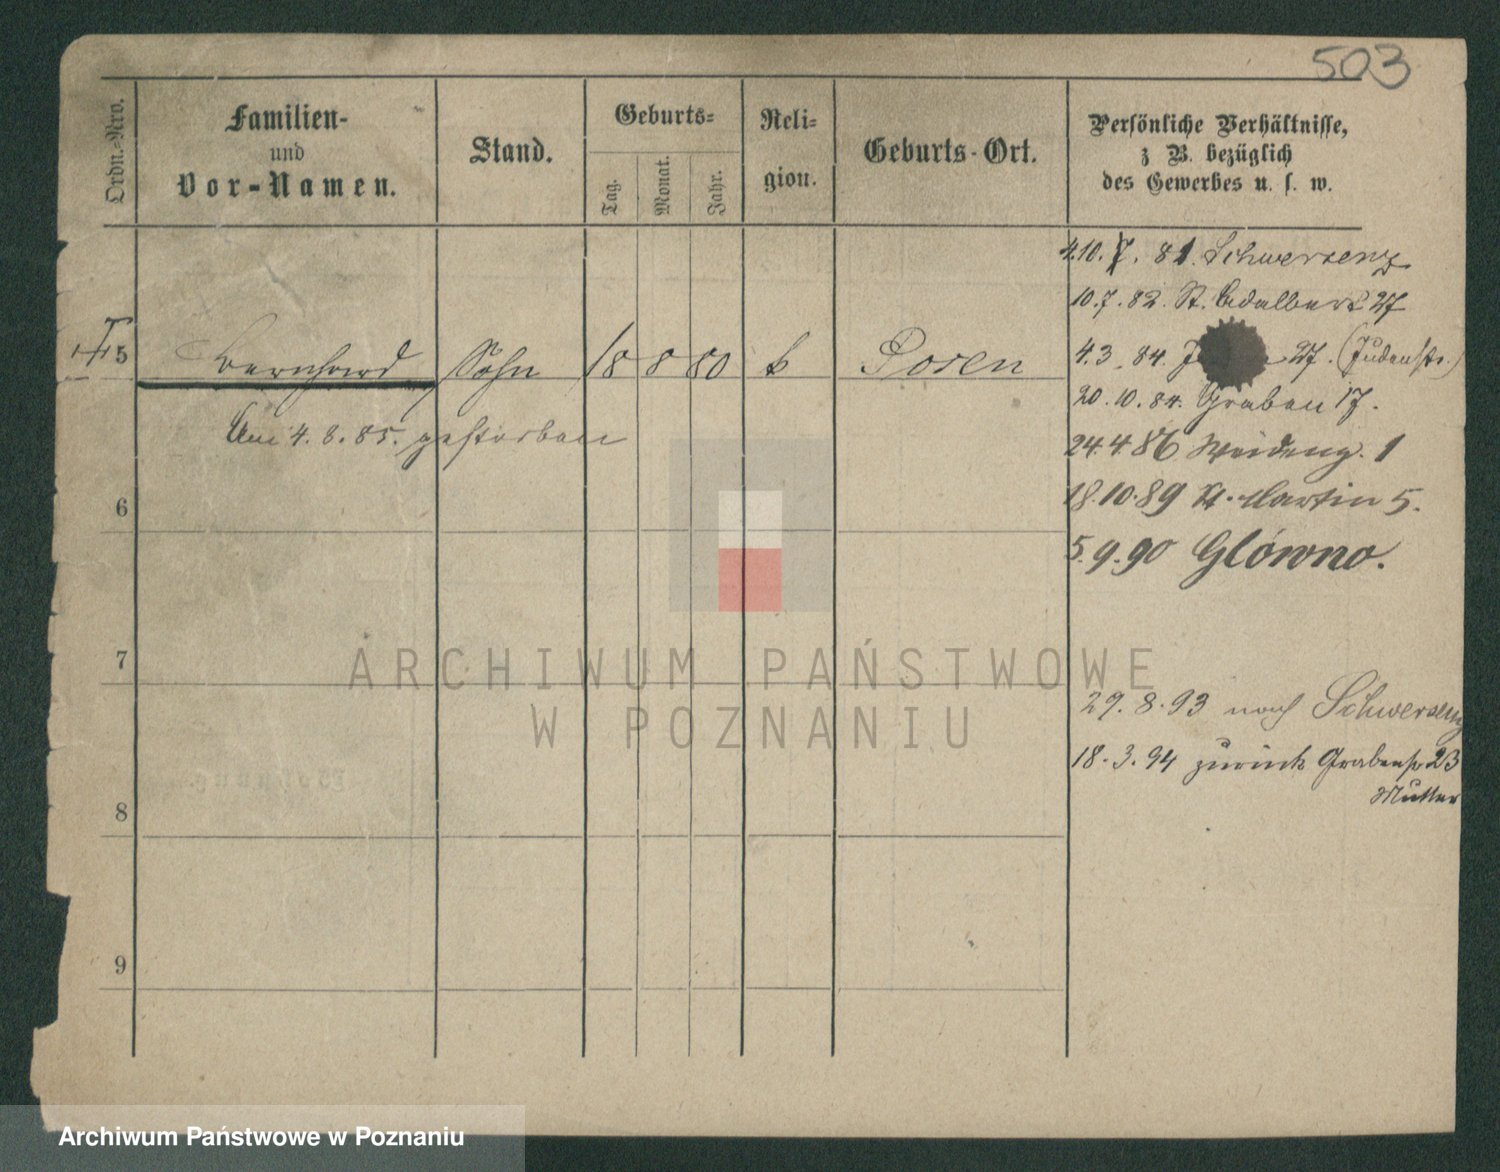 503
Ordn.-Nro.
Familien-
und
Vor-Namen.
Stand.
Geburts-
Tag.
Monat.
Jahr.
Reli-
gion.
Geburts-Ort.
Persönliche Verhältnisse,
z B. bezüglich
des Gewerbes u. s. w.
4.10. 81. Schwersenz
10.7.82. St. Adalbert 27
5 Bernhard Sohn 18 8 80 Posen
4.3.84. 27. (Judenstr.)
20.10.84. Graben 17.
Am 4.8.85. gestorben
24.4.86 Weideng. 1
6
18.10.89 St. Martin 5.
5.9.90 Główno.
7
ARCHIWUM PAŃSTWOWE
W POZNANIU
29.8.93 nach Schwersenz
18.3.94 zurück Grabenstr 23
Mutter
8
9
Archiwum Państwowe w Poznaniu